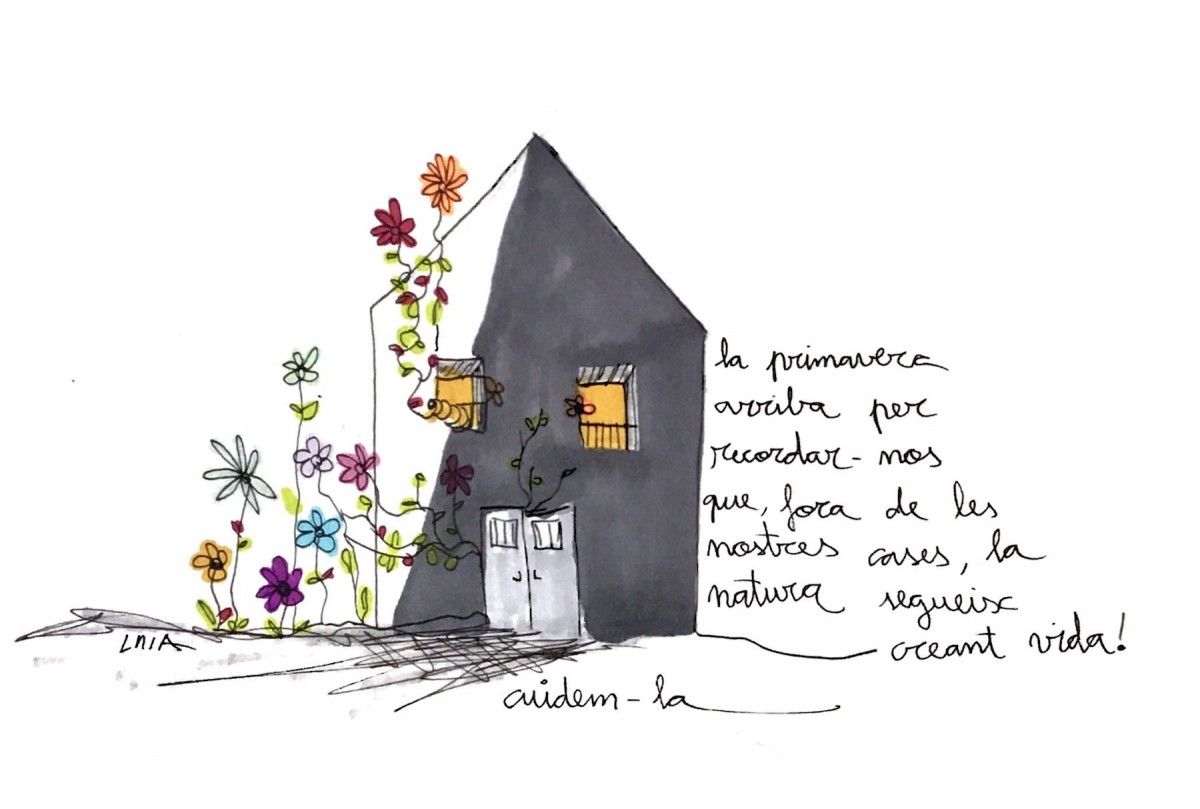 la primavera
arriba per
recordar-nos
que, fora de les
nostres cases, la
natura segueix
creant vida!
LAIA
cuidem-la